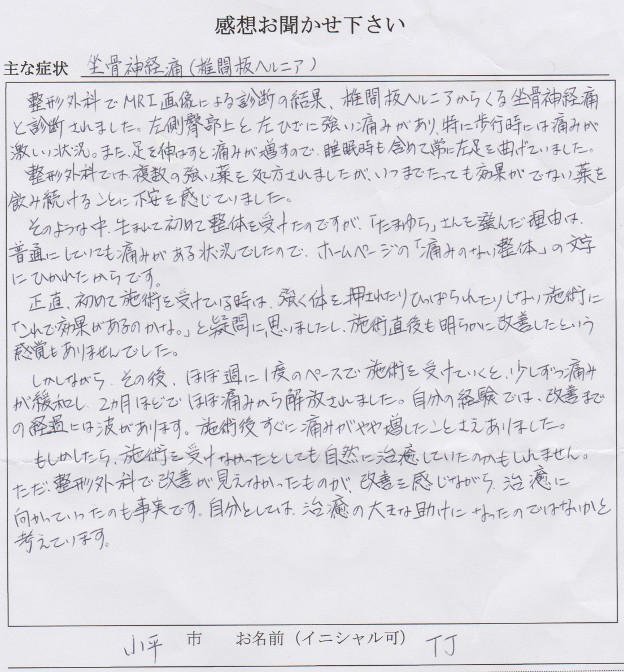 感想お聞かせ下さい
主な症状 坐骨神経痛(椎間板ヘルニア)
整形外科でMRI画像による診断の結果、椎間板ヘルニアからくる坐骨神経痛
と診断されました。左側臀部上と左ひざに強い痛みがあり、特に歩行時には痛みが
激しい状況。また、足を伸ばすと痛みが増すので、睡眠時も含めて常に左足を曲げていました。
整形外科では、複数の強い薬を処方されましたが、いつまでたっても効果がでない薬を
飲み続けることに不安を感じていました。
そのような中、生まれて初めて整体を受けたのですが、「たまゆら」さんを選んだ理由は、
普通にしていても痛みがある状況でしたので、ホームページの「痛みのない整体」の文字
にひかれたからです。
正直、初めて施術を受けている時は、強く体を押されたりひっぱられたりしない施術に
「これで効果があるのかな。」と疑問に思いましたし、施術直後も明らかに改善したという
感覚もありませんでした。
しかしながら、その後、ほぼ週に1度のペースで施術を受けていくと、少しずつ痛み
が緩和し、2ヵ月ほどでほぼ痛みから解放されました。自分の経験では、改善まで
の経過には波があります。施術後すぐに痛みがやや増したことさえありました。
もしかしたら、施術を受けなかったとしても自然に治癒していたのかもしれません。
ただ、整形外科で改善が見えなかったものが、改善を感じながら、治癒に
向かっていったのも事実です。自分としては、治癒の大きな助けになったのではないかと
考えています。
小平 市 お名前(イニシャル可) TJ